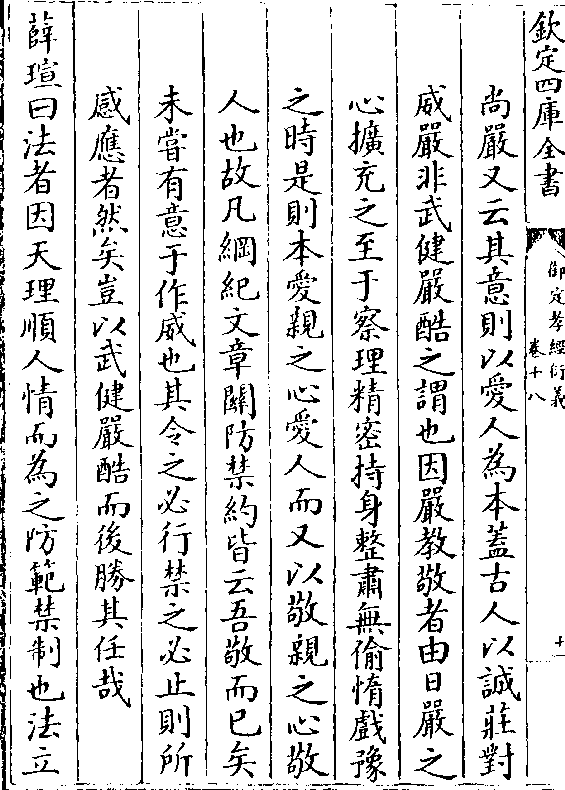 欽定四庫全書
御定孝經衍義
卷十八
十
尚嚴又云其意則以愛人為本蓋古人以誠莊對
威嚴非武健嚴酷之謂也因嚴教敬者由日嚴之
心擴充之至于察理精密持身整肅無偷惰戲豫
之時是則本愛親之心愛人而又以敬親之心敬
人也故凡綱紀文章關防禁約皆云吾敬而已矣
未嘗有意于作威也其令之必行禁之必止則所
感應者然矣豈以武健嚴酷而後勝其任哉
薛瑄曰法者因天理順人情而為之防範禁制也法立